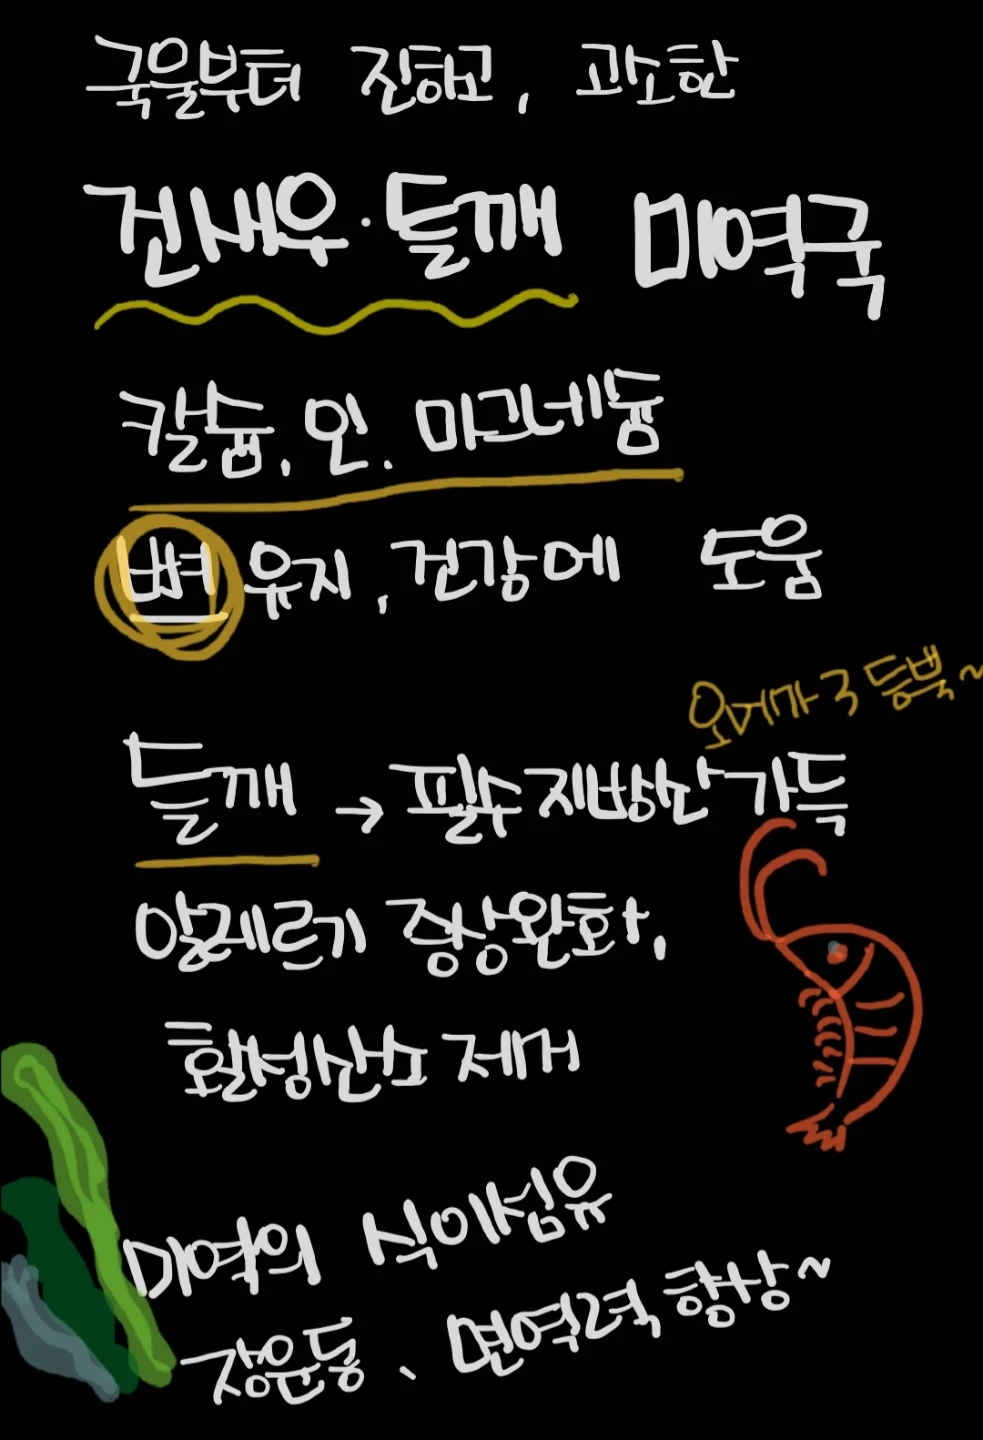 국물부터 진하고, 고소한
건새우·들깨 미역국
칼슘, 인, 마그네슘
뼈 유지, 건강에 도움
오메가3 듬뿍~
들깨 → 필수지방산 가득
알레르기 증상완화,
활성산소 제거
미역의 식이섬유
장운동、면역력 향상~